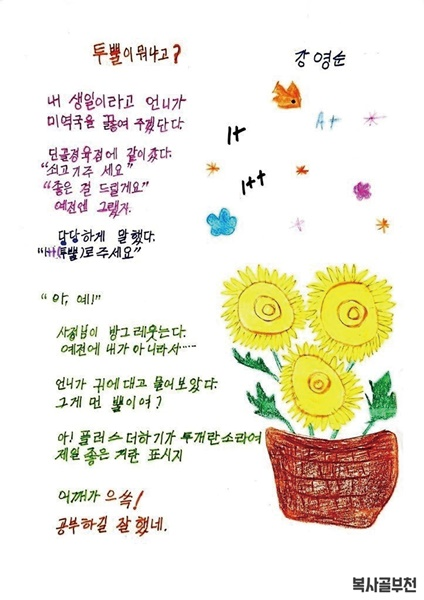 투뿔이 뭐냐고?
강영순
내 생일이라고 언니가
미역국을 끓여 주겠단다.
단골정육점에 같이갔다.
"쇠고기주 세요"
"좋은 걸 드릴게요"
예전엔 그랬지.
당당하게 말했다.
"1++(투뿔)로주세요"
"아, 예!"
사장님이 방그레웃는다.
예전에 내가 아니라서……
언니가 귀에대고 물어보았다.
그게 먼 뿔이여?
아! 플러스 더하기가 두개란소리여
제일 좋은 거란 표시지
어깨가 으쓱!
공부하길 잘 했네.
1+
A+
1++
복사골부천